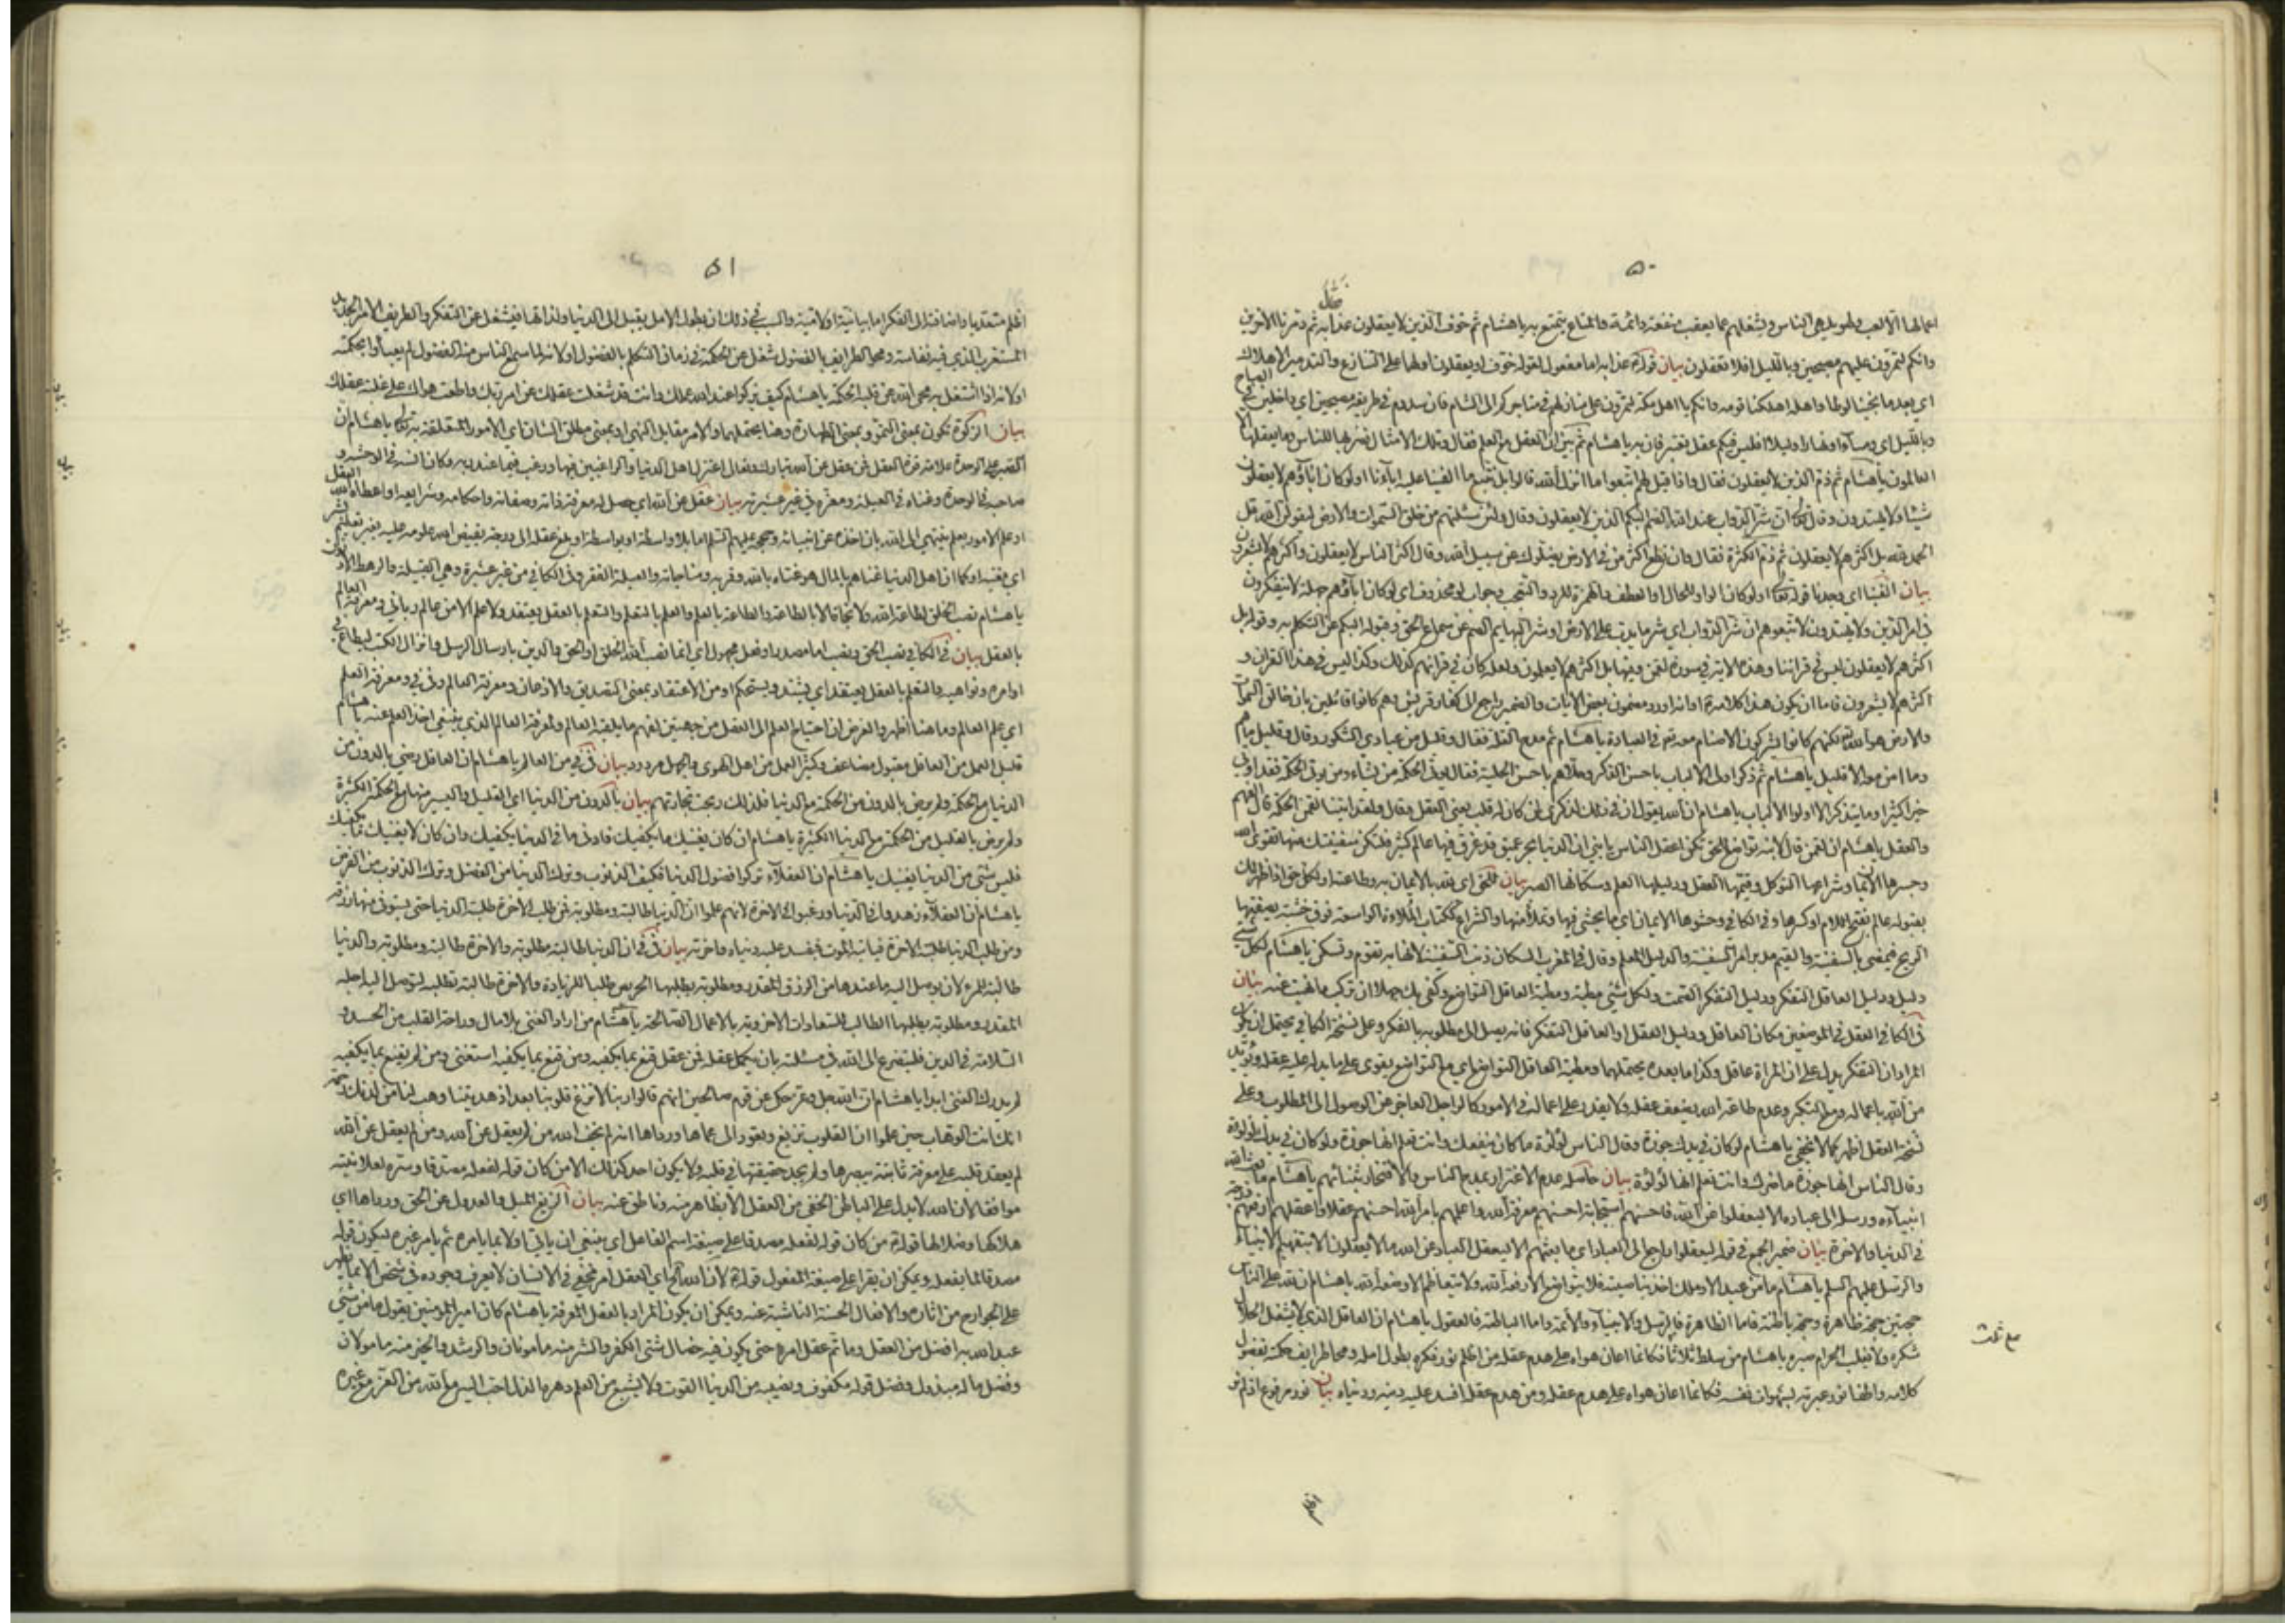 ٥٠
اعمالها الا لعب ولهو يلهي الناس ويشغلهم عما يعقب منفعة دائمة والمتاع يتمتع به يا هشام ثم خوف الذين لا يعقلون عذابه ثم دمرنا الاخرين
وانكم لتمرون عليهم مصبحين وبالليل افلا تعقلون بيان قوله عذابه اما مفعول لقوله خوف او يعقلون او لهما على التنازع والتدمير الاهلاك
اي بعد ما نجينا لوطا واهله اهلكنا قومه وانكم يا اهل مكة لتمرون على منازلهم في متاجركم الى الشام فان سدوم في طريقه مصبحين اي داخلين في الصباح
وبالليل اي ومساء او نهارا وليلا افليس فيكم عقل تعتبرون به يا هشام ثم بين ان العقل مع العلم فقال وتلك الامثال نضربها للناس وما يعقلها الا
العالمون يا هشام ثم ذم الذين لا يعقلون فقال واذا قيل لهم اتبعوا ما انزل الله قالوا بل نتبع ما الفينا عليه اباءنا اولو كان اباؤهم لا يعقلون
شيئا ولا يهتدون وقال ان شر الدواب عند الله الصم البكم الذين لا يعقلون وقال ولئن سئلتهم من خلق السموات والارض ليقولن الله قل
الحمد لله بل اكثرهم لا يعقلون ثم ذم الكثرة فقال وان تطع اكثر من في الارض يضلوك عن سبيل الله وقال اكثر الناس لا يعقلون واكثرهم لا يشعرون
بيان الفينا اي وجدنا قوله تعالى اولو كان الواو للحال او العطف والهمزة للرد والتعجب وجواب لو محذوف اي لو كان اباؤهم جهلة لا يتفكرون
في امر الدين ولا يهتدون لاتبعوهم ان شر الدواب اي شر ما يدب على الارض او شر البهايم الصم عن سماع الحق وقبوله البكم عن التكلم به وقوله بل
اكثرهم لا يعقلون ليس في قراننا وهذه الاية في سورة لقمن وفيها بل اكثرهم لا يعلمون ولعله كان في قرانهم كذلك وكذا ليس في هذا القران و
اكثرهم لا يشعرون فاما ان يكون هذا كلامه او انه اورد مضمون بعض الايات والضمير راجع الى كفار قريش وهم كانوا قائلين بان خالق السموات
والارض هو الله لكنهم كانوا يشركون الاصنام معه في العبادة يا هشام ثم مدح القلة فقال وقليل من عبادي الشكور وقال وقليل ما هم
وما امن معه الا قليل يا هشام ثم ذكر اولى الالباب باحسن الذكر وحلاهم باحسن الحلية فقال يؤتي الحكمة من يشاء ومن يؤت الحكمة فقد اوتي
خيرا كثيرا وما يتذكر الا اولوا الالباب يا هشام ان الله يقول ان في ذلك لذكرى لمن كان له قلب يعني العقل وقال ولقد اتينا لقمن الحكمة قال الفهم
والعقل يا هشام ان لقمن قال لابنه تواضع للحق تكن اعقل الناس يا بني ان الدنيا بحر عميق قد غرق فيها عالم كثير فلتكن سفينتك منها تقوى الله
وجسرها الايمان وشراعها التوكل وقيمها العقل ودليلها العلم وسكانها الصبر بيان للحق اي لله بالايمان به وطاعته او لكل حق اذا ظهر لك
بقبوله عالم بفتح اللام او كسرها وفي الكافي وحشوها الايمان اي ما يحشى فيها وتملأ منها والشراع ككتاب الملاءة الواسعة فوق خشبة يصفقها
الريح فيمضي بالسفينة والقيم مدبر امر السفينة والدليل المعلم وقال في المغرب السكان ذنب السفينة لانها به تقوم وتسكن يا هشام لكل شئ
دليل ودليل العاقل التفكر ودليل التفكر الصمت ولكل شئ مطية ومطية العاقل التواضع وكفى بك جهلا ان تركب ما نهيت عنه بيان
في الكافي العقل في الموضعين مكان العاقل ودليل العقل او العاقل التفكر فانه يصل الى مطلوبه بالفكر وعلى نسخة الكافي يحتمل ان يكون
المراد ان التفكر يدل على ان المراة عاقل وكذا ما بعده يحتملهما ومطية العاقل التواضع اي مع التواضع يقوى على ما يدله عليه عقله ويؤيد
من الله باعماله ومع التكبر وعدم طاعة الله يضعف عقله ولا يقدر على اعماله في الامور كالراجل العاجز عن الوصول الى المطلوب وعلى
نسخة العقل اظهر كما لا يخفى يا هشام لو كان في يدك جوزة وقال الناس لؤلؤة ما كان ينفعك وانت تعلم انها جوزة ولو كان في يدك لؤلؤة
وقال الناس انها جوزة ما ضرك وانت تعلم انها لؤلؤة بيان حاصله عدم الاغترار بمدح الناس والافتخار بثنائهم يا هشام ما بعث الله
انبياءه ورسله الى عباده الا ليعقلوا عن الله فاحسنهم استجابة احسنهم معرفة لله واعلمهم بامر الله احسنهم عقلا واعقلهم ارفعهم درجة
في الدنيا والاخرة بيان ضمير الجمع في قوله ليعقلوا راجع الى العباد اي ما بعثهم الا ليعقل العباد عن الله ما لا يعقلون الا بتفهيم الانبياء
والرسل عليهم السلم يا هشام ما من عبد الا وملك اخذ بناصيته فلا يتواضع الا رفعه الله ولا يتعاظم الا وضعه الله يا هشام ان لله على الناس
حجتين حجة ظاهرة وحجة باطنة فاما الظاهرة فالرسل والانبياء والائمة واما الباطنة فالعقول يا هشام ان العاقل الذي لا يشغل الحلال
شكره ولا يغلب الحرام صبره يا هشام من سلط ثلاثا فكانما اعان هواه على هدم عقله من اظلم نور فكره بطول امله ومحا طرايف حكمته بفضول
كلامه واطفا نور عبرته بشهوات نفسه فكانما اعان هواه على هدم عقله ومن هدم عقله افسد عليه دينه ودنياه بيان نور مرفوع اذ لم نر
٥١
اظلم متعديا واضافته الى الفكر اما بيانية او لامية والسبب في ذلك ان بطول الامل يقبل الى الدنيا ولذاتها فيشغل عن التفكر والطريف الامر الجديد
المستغرب الذي فيه نفاسة ومحو الطرايف بالفضول شغل عن الحكمة في زمان التكلم بالفضول او لانه لما سمع الناس منه الفضول لم يعبأوا بحكمته
او لانه اذا اشتغل به محى الله عن قلبه الحكمة يا هشام كيف يزكوا عند الله عملك وانت قد شغلت عقلك عن امر ربك واطعت هواك على غلبة عقلك
بيان الزكوة تكون بمعنى النمو وبمعنى الطهارة وهنا يحتملهما والامر مقابل النهي او بمعنى مطلق الشان اي الامور المتعلقة به تعالى يا هشام ان
الصبر على الوحدة علامة قوة العقل فمن عقل عن الله تبارك وتعالى اعتزل اهل الدنيا والراغبين فيها ورغب فيما عند ربه وكان انسه في الوحشة و
صاحبه في الوحدة وغناه في العيلة ومعزه في غير عشيرته بيان عقل عن الله اي حصل له معرفة ذاته وصفاته واحكامه وشرايعه او اعطاه الله العقل
او علم الامور بعلم ينتهي الى الله بان اخذه عن انبيائه وحججه عليهم السلم اما بلا واسطة او بواسطة او بلغ عقله الى درجة يفيض الله علومه عليه بغير تعليم بشر
اي مغنيه او كما ان اهل الدنيا غناهم بالمال هو غناه بالله وقربه ومناجاته والعيلة الفقر وفي الكافي من غير عشيرة وهي القبيلة والرهط الادنون
يا هشام نصب الخلق لطاعة الله ولا نجاة الا بالطاعة والطاعة بالعلم والعلم بالتعلم والتعلم بالعقل يعتقد ولا علم الا من عالم رباني ومعرفة العالم
بالعقل بيان في الكافي نصب الحق ونصب اما مصدر او فعل مجهول اي انما نصب الله الخلق او الحق والدين بارسال الرسل وانزال الكتب ليطاع في
اوامره ونواهيه والتعلم بالعقل يعتقد اي يشتد ويستحكم او من الاعتقاد بمعنى التصديق والاذعان ومعرفة العالم وفي في ومعرفة العلم
اي علم العالم وما هنا اظهر والغرض ان احتياج العلم الى العقل من جهتين لفهم ما يلقيه العالم ولمعرفة العالم الذي ينبغي اخذ العلم عنه يا هشام
قليل العمل من العاقل مقبول مضاعف وكثير العمل من اهل الهوى والجهل مردود بيان في في من العالم يا هشام ان العاقل رضي بالدون من
الدنيا مع الحكمة ولم يرض بالدون من الحكمة مع الدنيا فلذلك ربحت تجارتهم بيان بالدون من الدنيا اي القليل واليسير منها مع الحكمة الكثيرة
ولم يرض بالقليل من الحكمة مع الدنيا الكثيرة يا هشام ان كان يغنيك ما يكفيك فادنى ما في الدنيا يكفيك وان كان لا يغنيك ما يكفيك
فليس شئ من الدنيا يغنيك يا هشام ان العقلاء تركوا فضول الدنيا فكيف الذنوب وترك الدنيا من الفضل وترك الذنوب من الفرض
يا هشام ان العقلاء زهدوا في الدنيا ورغبوا في الاخرة لانهم علموا ان الدنيا طالبة ومطلوبة فمن طلب الاخرة طلبته الدنيا حتى يستوفي منها رزقه
ومن طلب الدنيا طلبته الاخرة فياتيه الموت فيفسد عليه دنياه واخرته بيان في في ان الدنيا طالبة مطلوبة والاخرة طالبة ومطلوبة والدنيا
طالبة للمرء لان يوصل اليه ما عندها من الرزق المقدر ومطلوبة يطلبها الحريص طلبا للزيادة والاخرة طالبة تطلبه لتوصل اليه اجله
المقدر ومطلوبة يطلبها الطالب للسعادات الاخروية بالاعمال الصالحة يا هشام من اراد الغنى بلا مال وراحة القلب من الحسد و
السلامة في الدين فليتضرع الى الله في مسئلته بان يكمل عقله فمن عقل قنع بما يكفيه ومن قنع بما يكفيه استغنى ومن لم يقنع بما يكفيه
لم يدرك الغنى ابدا يا هشام ان الله جل وعز حكى عن قوم صالحين انهم قالوا ربنا لا تزغ قلوبنا بعد اذ هديتنا وهب لنا من لدنك رحمة
انك انت الوهاب حين علموا ان القلوب تزيغ وتعود الى عماها ورداها انه لم يخف الله من لم يعقل عن الله ومن لم يعقل عن الله
لم يعقد قلبه على معرفة ثابتة يبصرها ولم يجد حقيقتها في قلبه ولا يكون احد كذلك الا من كان قوله لفعله مصدقا وسره لعلانيته
موافقا لان الله لا يدل على الباطن الخفي من العقل الا بظاهر منه وناطق عنه بيان الزيغ الميل والعدول عن الحق ورداها اي
هلاكها وضلالها قوله من كان قوله لفعله مصدقا على صيغة اسم الفاعل اي ينبغي ان ياتي اولا بما يامره ثم يامر غيره ليكون قوله
مصدقا لما يفعله ويمكن ان يقرا على صيغة المفعول قوله لان الله الخ اي العقل امر مخفي في الانسان لا يعرف وجوده في شخص الا بما يظهر
على الجوارح من اثاره والافعال الحسنة الناشية عنه ويمكن ان يكون المراد بالعقل المعرفة يا هشام كان امير المؤمنين يقول ما من شئ
عبد الله به افضل من العقل وما تم عقل امرء حتى يكون فيه خصال شتى الكفر والشر منه مامونان والرشد والخير منه مامولان
وفضل ماله مبذول وفضل قوله مكفوف ونصيبه من الدنيا القوت ولا يشبع من العلم دهره الذل احب اليه مع الله من العز مع غيره